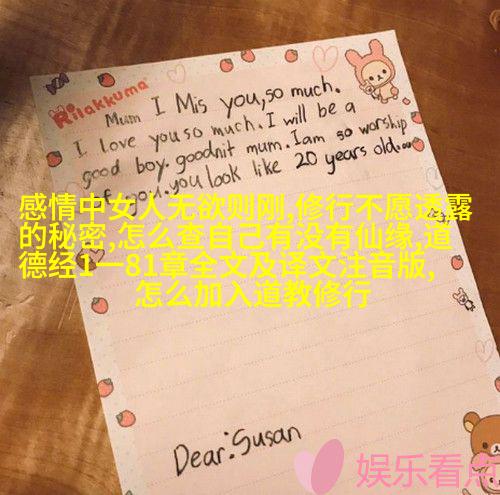 Rilakkuma
Mum I Mis you,so much.
I love you so much. I will be a
good boy. goodnit mum. I am so worship
of you. you look like 20 years old.
感情中女人无欲则刚,修行不愿透露
的秘密,怎么查自己有没有仙缘,道
德经1一81章全文及译文注音版,
怎么加入道教修行
Dear:Susan
娱乐看点